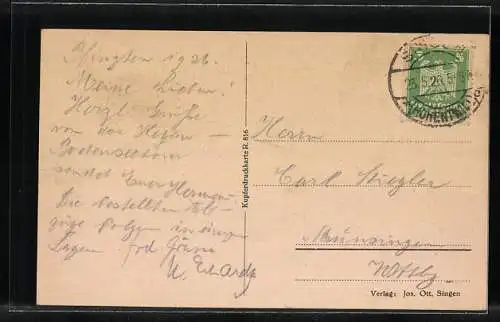 Pfingsten 1926.
Meine Lieben!
Herzl. Grüße
von der Hegau-
Bodenseetour
sendet Euer Hermann.
Die bestellten Ab-
züge folgen in einigen
Tagen
Kupferdruckkarte R. 816
5
Herrn
Carl Stiegler
Münsingen
Wttbg
Verlag: Jos. Ott, Singen